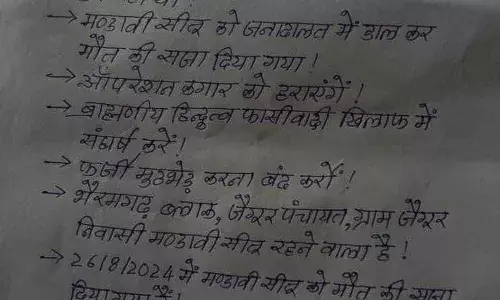 → मण्डावी सीतू को जनादालत में डाल कर
मौत की सजा दिया गया !
→ ऑपरेशन कगार को हरायेंगें !
→ ब्राह्मणीय हिन्दुत्व फासीवादी खिलाफ में
संघर्ष करें !
→ फर्जी मुठभेड़ करना बंद करों !
→ भैरमगढ़ ब्लाक, जैगूर पंचायत, ग्राम जैगूर
निवासी मण्डावी सीतू रहने वाला है !
→ 26/8/2024 में मण्डावी सीतू को मौत की सजा
दिया गया है !